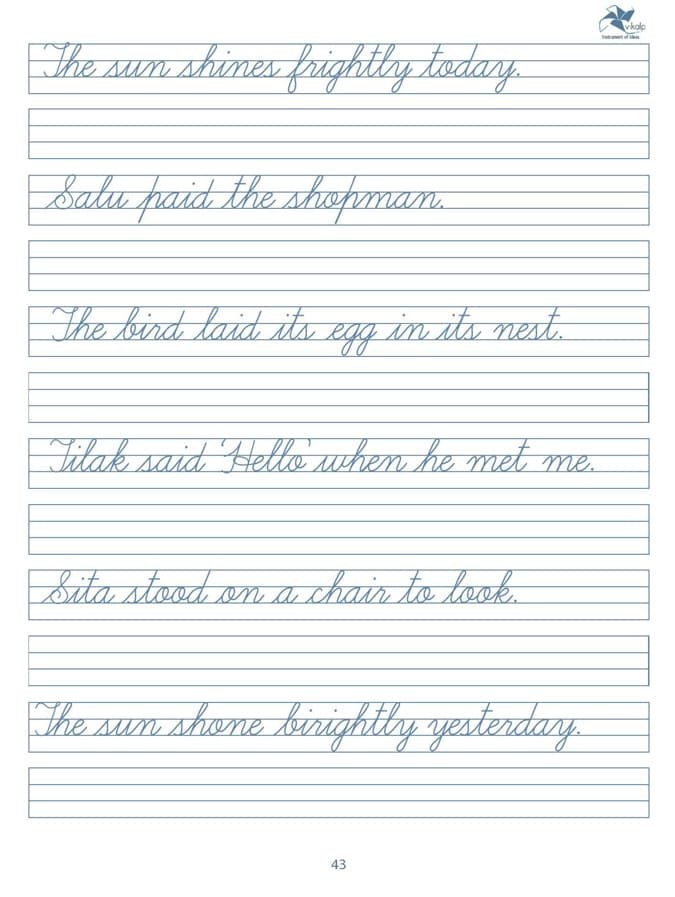 vikalp
Instrument of Ideas
The sun shines frightly today.
Salu paid the shopman.
The bird laid its egg in its nest.
Tilak said 'Hello' when he met me.
Sita stood on a chair to look.
The sun shone birightly yesterday.
43